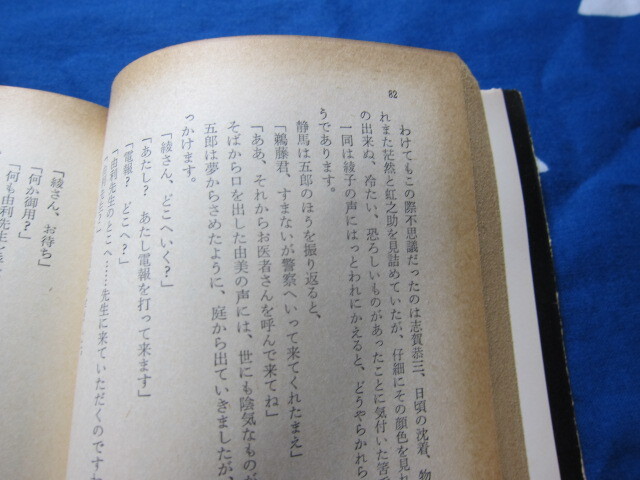 82
わけてもこの際不思議だったのは志賀恭三、日頃の沈着、物
れまた茫然と虹之助を見詰めていたが、仔細にその顔色を見れ
の出来ぬ、冷たい、恐ろしいものがあったことに気付いた筈で
一同は綾子の声にはっとわれにかえると、どうやらかれら
うであります。
静馬は五郎のほうを振り返ると、
「鵜藤君、すまないが警察へいって来てくれたまえ」
「ああ、それからお医者さんを呼んで来てね」
そばから口を出した由美の声には、世にも陰気なものが
五郎は夢からさめたように、庭から出ていきましたが、
っかけます。
「綾さん、どこへいく？」
「あたし？　あたし電報を打って来ます」
「電報？　どこへ？」
「由利先生のとこへ……先生に来ていただくのですわ
「綾さん、お待ち」
「何か御用？」
「何も由利先生